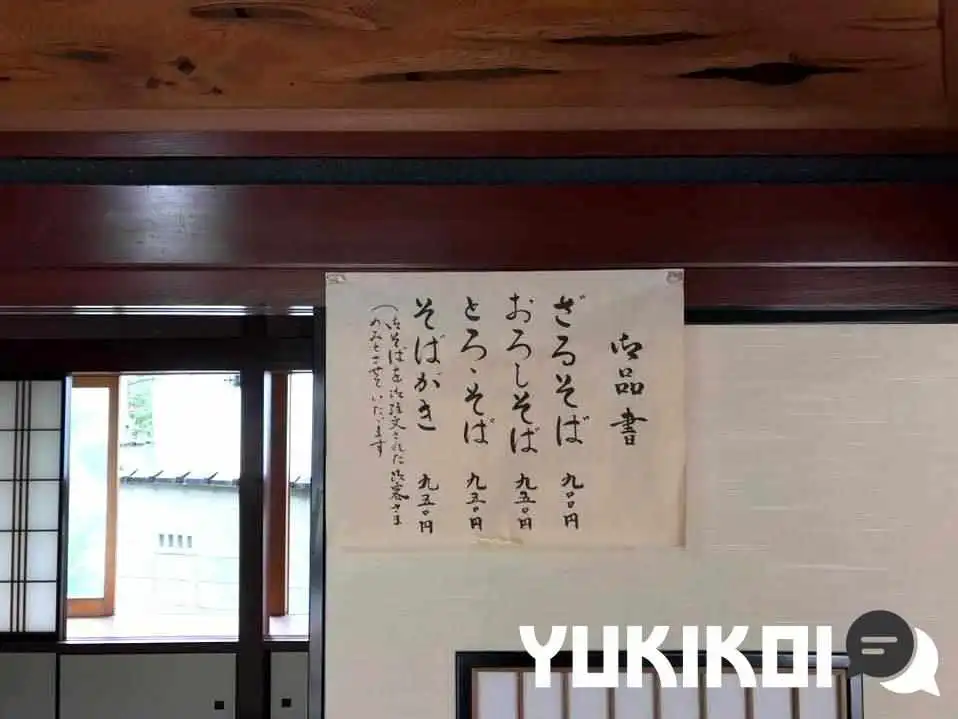 御品書
ざるそば 九〇〇円
おろしそば 九五〇円
とろゝそば 九五〇円
そばがき 九五〇円
（おそばを御注文された御客さま
のみとさせていただきます
YUKIKOI